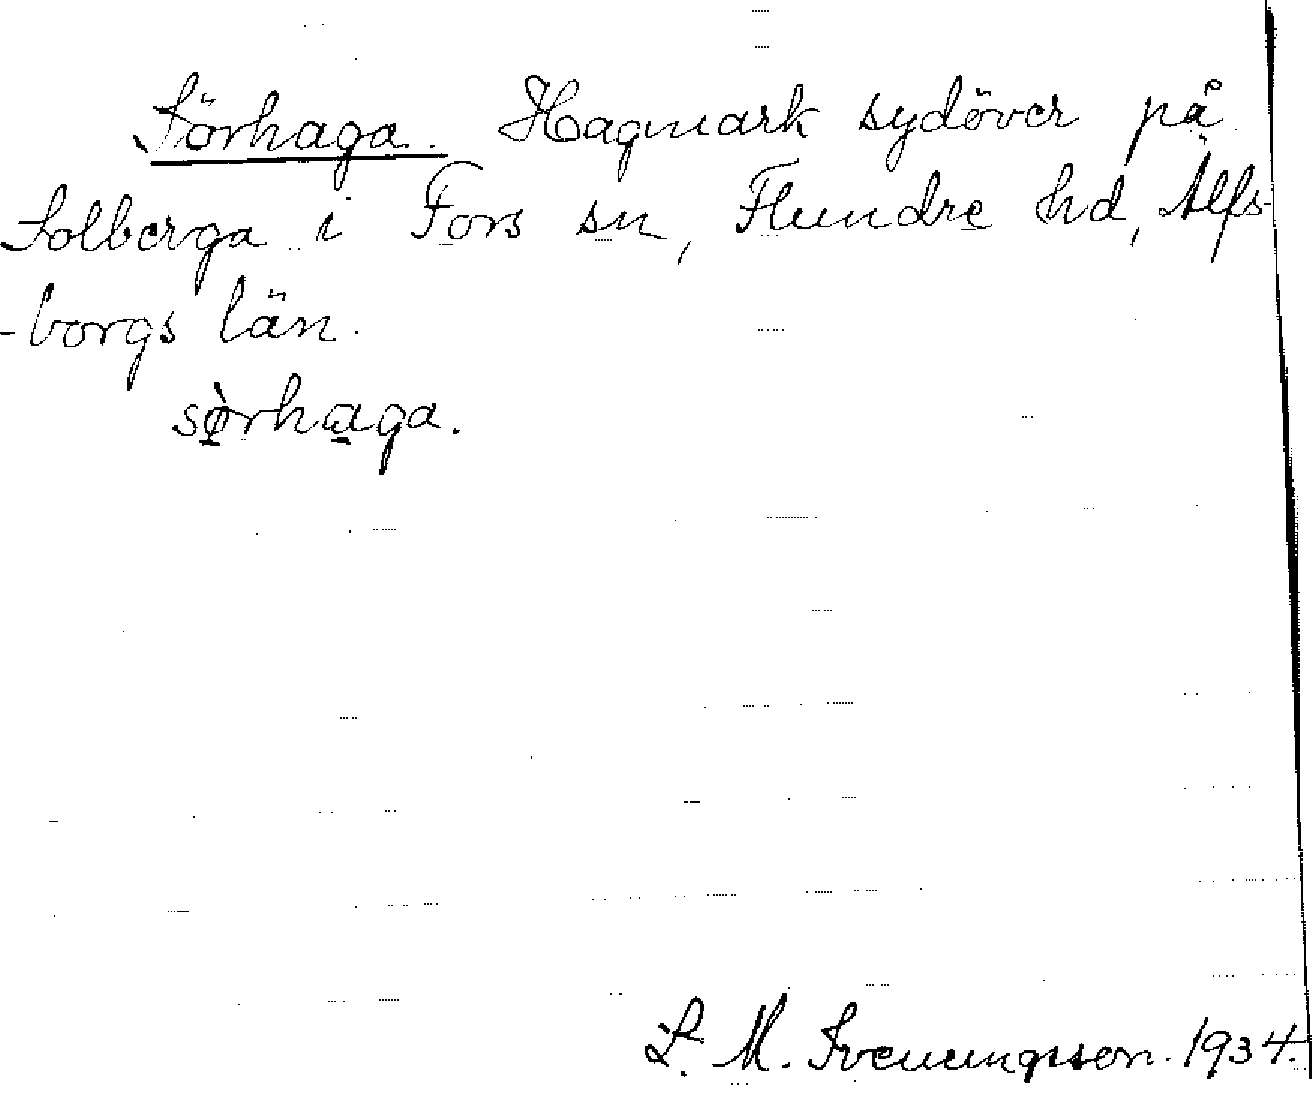 Sörhaga. Hagmark sydöver på
Solberga i Fors sn, Flundre hd, Älfs-
-borgs län.
sö̀rhaga.
S. M. Svenungsson. 1934.